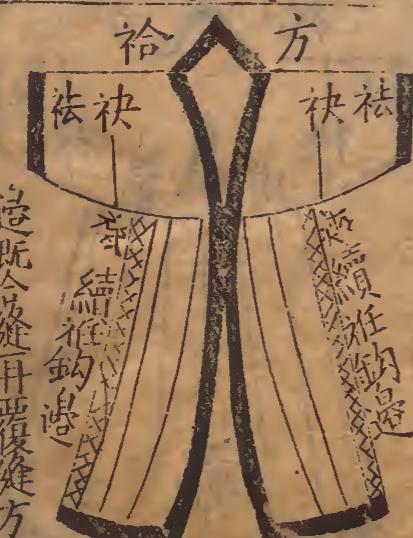 方袷
袪袂
袂袪
續衽鈎邊
續衽鈎邊
邊既合縫再覆縫方